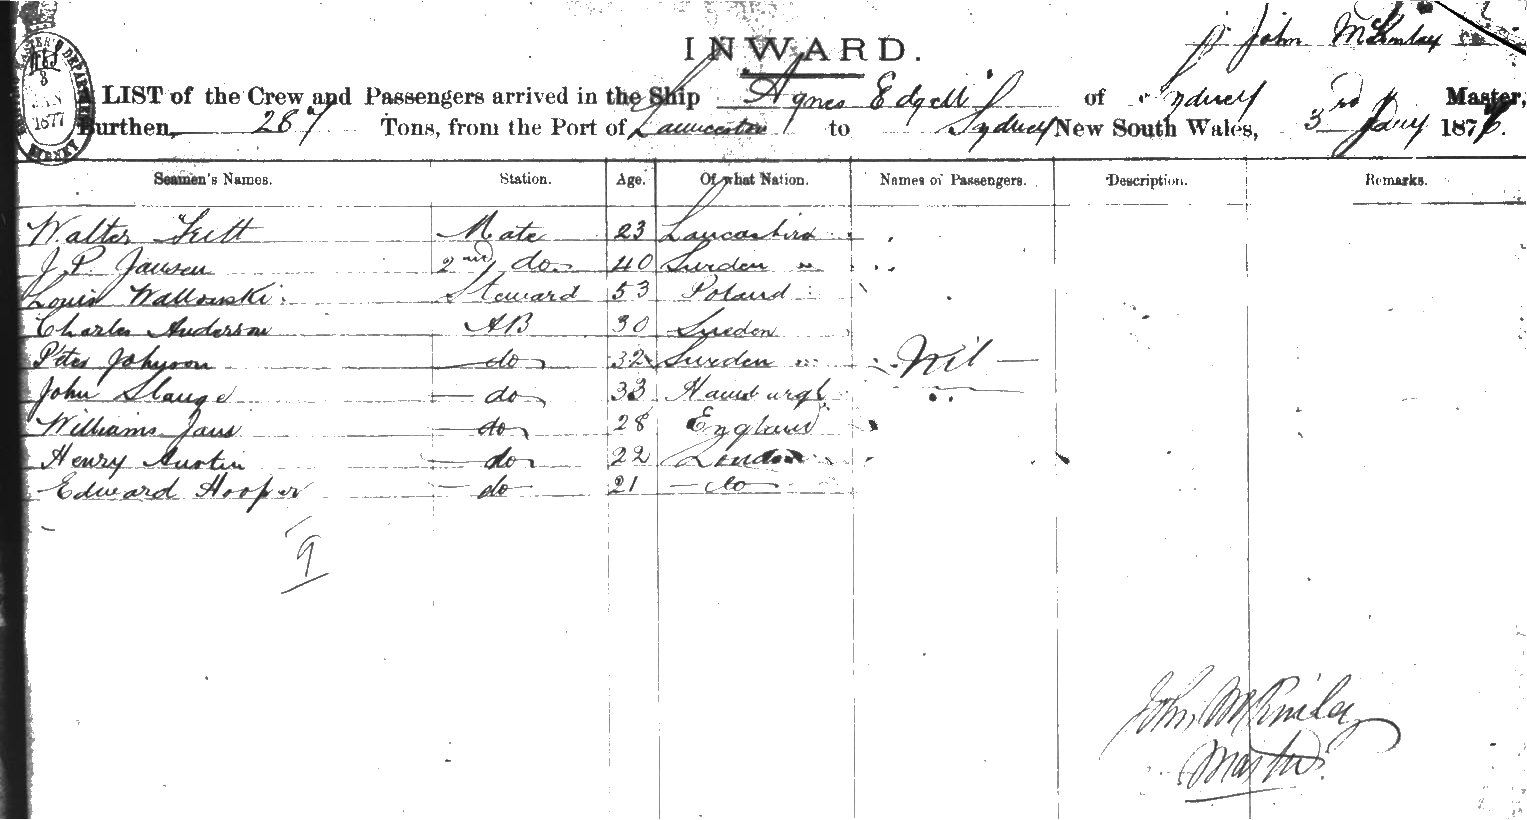 INWARD.
John McKinlay
LIST of the Crew and Passengers arrived in the Ship Agnes Edgell of Sydney Master,
Burthen, 287 Tons, from the Port of Launceston to Sydney New South Wales, 3rd Jany 187
JAN
1877
SYDNEY
Seamen's Names. Station. Age. Of what Nation. Names of Passengers. Description. Remarks.
Walter Mate 23 Lancashire
J. P. Jansen 2nd do 40 Sweden
Louis Wallowski Steward 53 Poland
Charles Anderson AB 30 Sweden
Peter Johnson do 32 Sweden Nil
John Slange do 33 Hamburgh
Williams do 28 England
Henry Austin do 22 London
Edward Hooper do 21 do
9
John McKinlay
Master